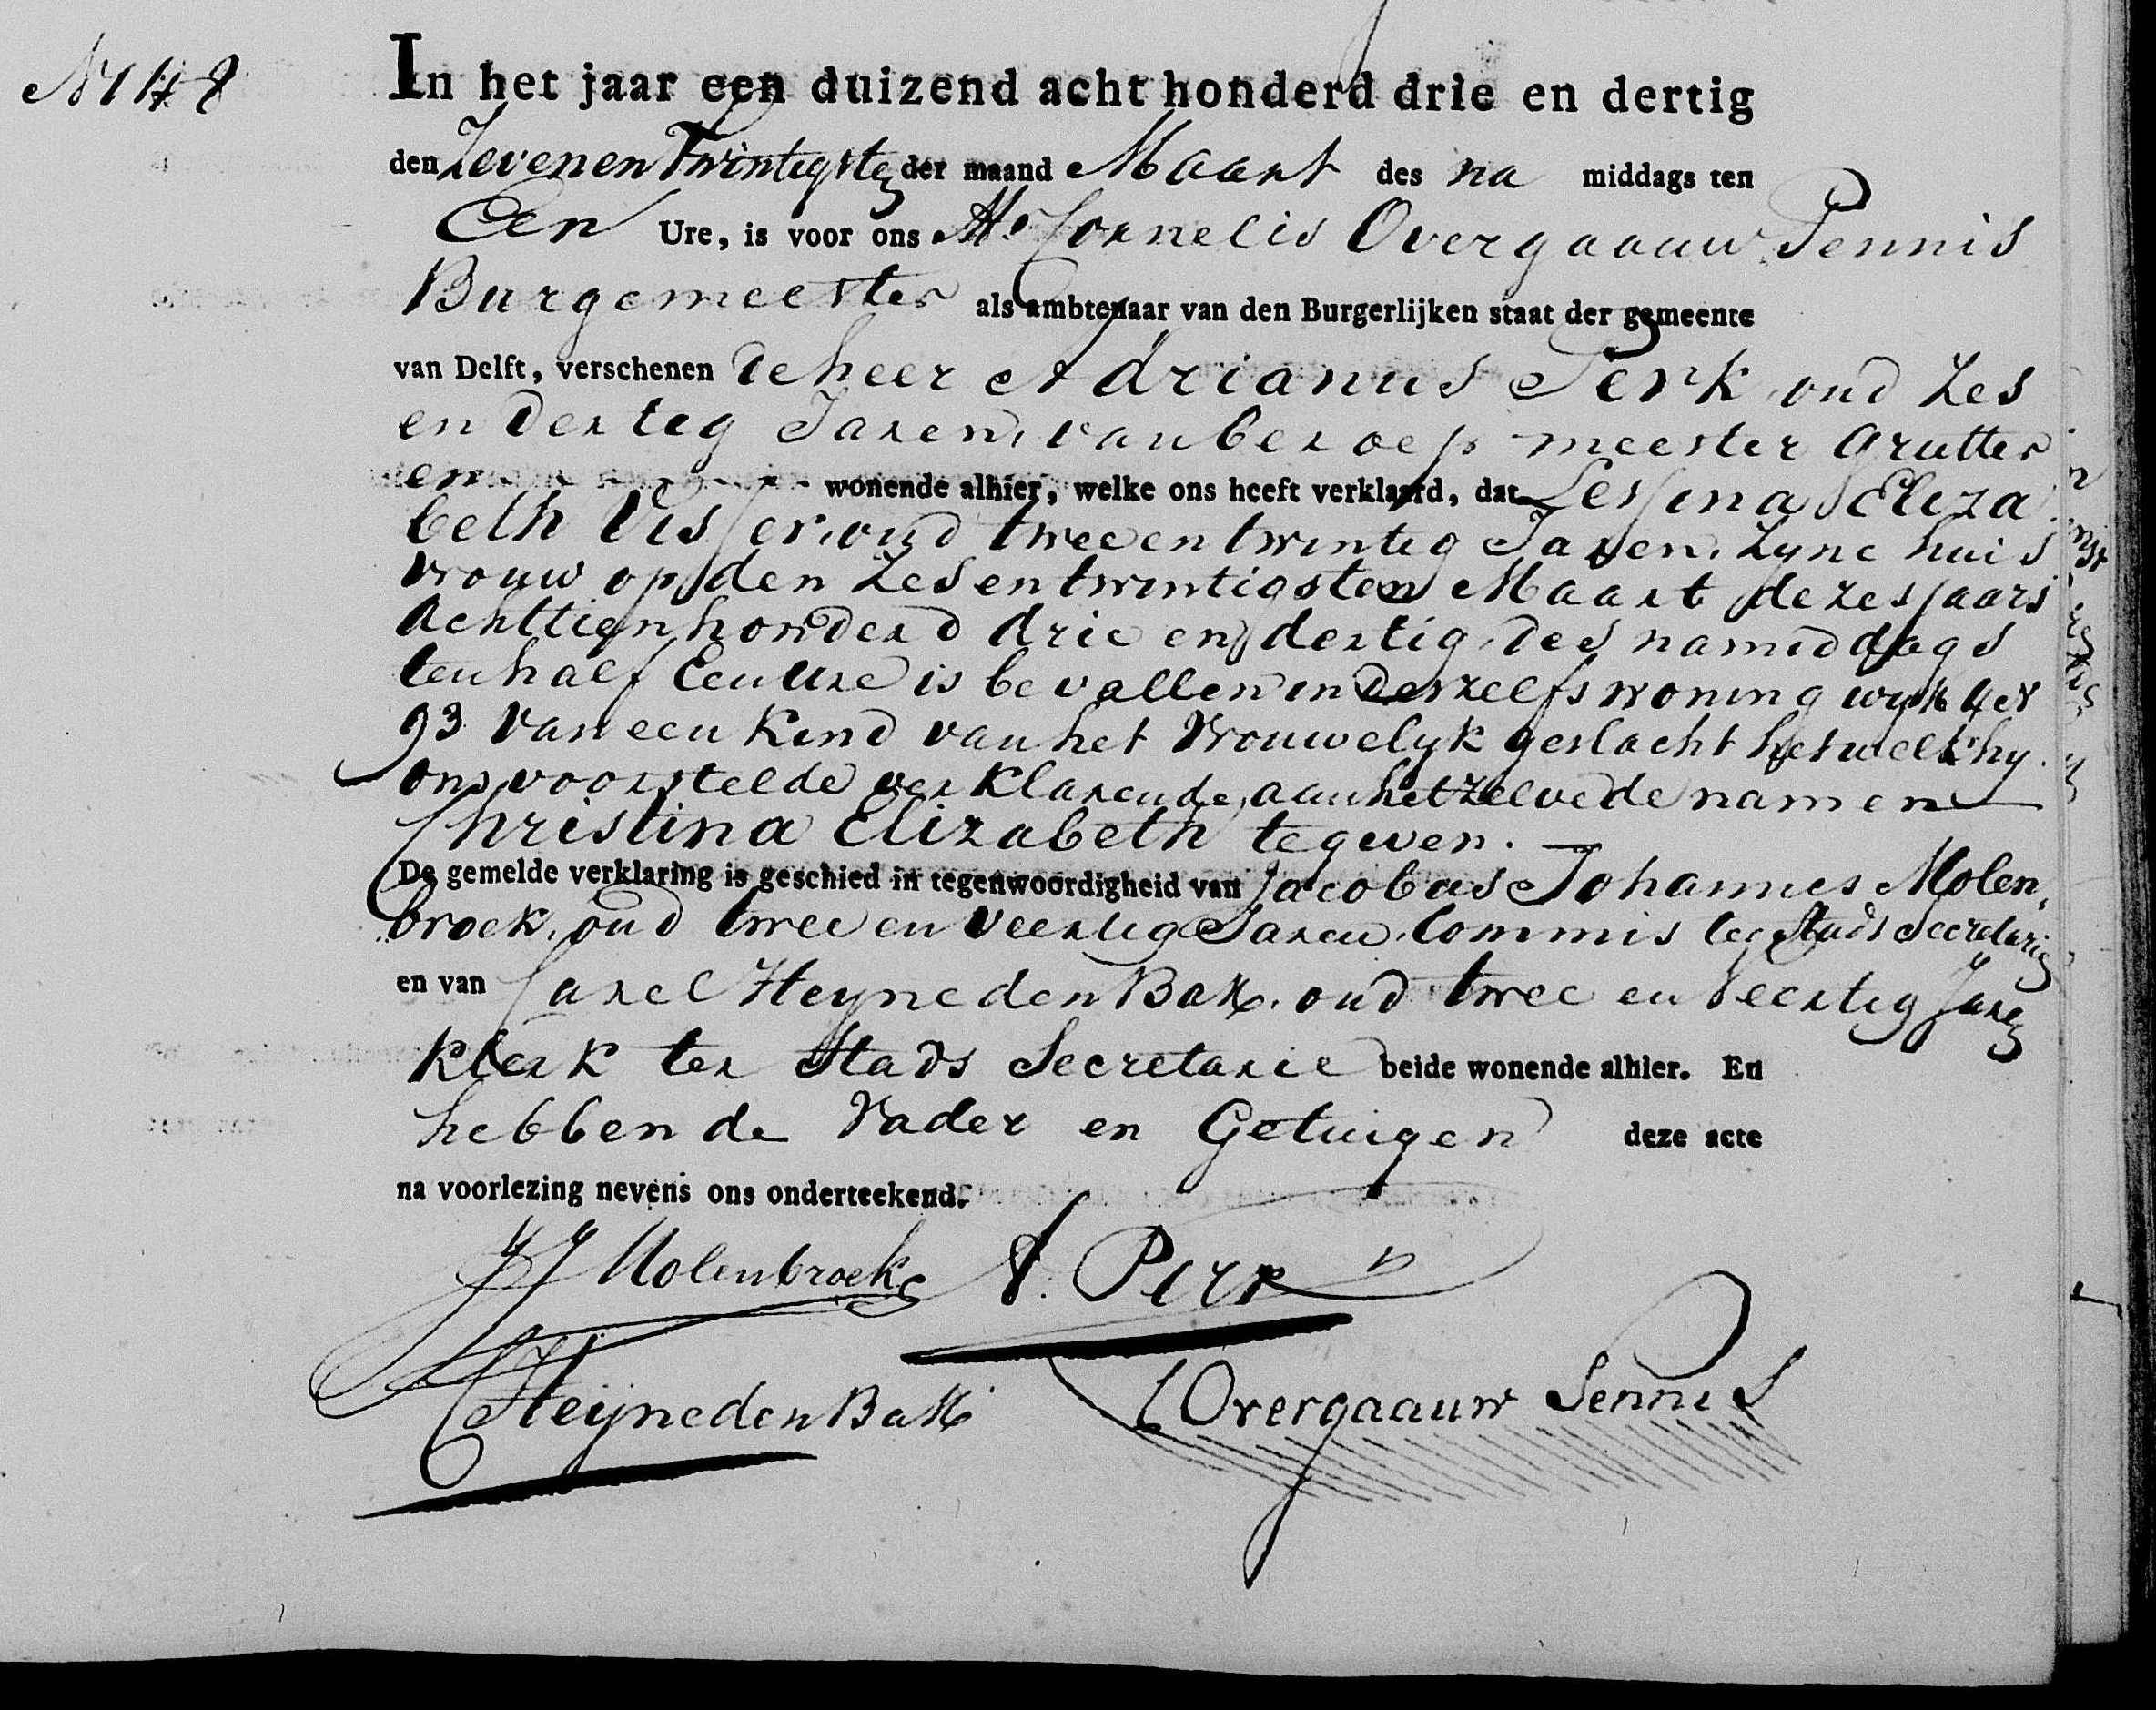 N 148
In het jaar een duizend acht honderd drie en dertig
den Zevenen Twintigsten der maand Maart des na middags ten
Een Ure, is voor ons Mr Cornelis Overgaauw Pennis
Burgemeester als ambtenaar van den Burgerlijken staat der gemeente
van Delft, verschenen de heer Adrianus Perk oud Zes
en dertig Jaren, van beroep meester Grutter
en wonende alhier, welke ons heeft verklaard, dat Lessina Eliza
beth Visser, oud twee en twintig Jaren, Zyne huis
vrouw op den Zes en twintigsten Maart dezes jaars
Achttien honderd drie en dertig, des namiddags
ten half Een Ure is bevallen in derzelfs woning wyk
93 van een Kind van het Vrouwelyk geslacht hetwelk hy
ons voorstelde verklarende aan hetzelve de namen
Christina Elizabeth te geven.
De gemelde verklaring is geschied in tegenwoordigheid van Jacobus Johannes Molen,
broek, oud twee en veertig Jaren, Commis ter Stads Secretarie
en van Carel Heyne den Bak, oud twee en Veertig Jaren
Klerk ter Stads Secretarie beide wonende alhier. En
hebben de Vader en Getuigen deze acte
na voorlezing nevens ons onderteekend.
JJ Molenbroek A. Perk
C Heijne den Bak C Overgaauw Pennis